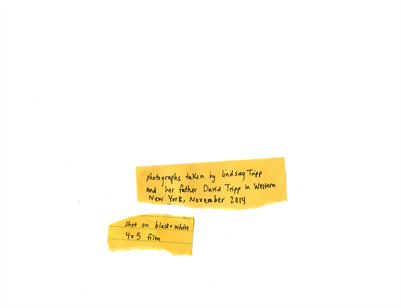 photographs taken by lindsay Tripp
and her father David Tripp in Western
New York, November 2014
shot on black+white
4x5 film